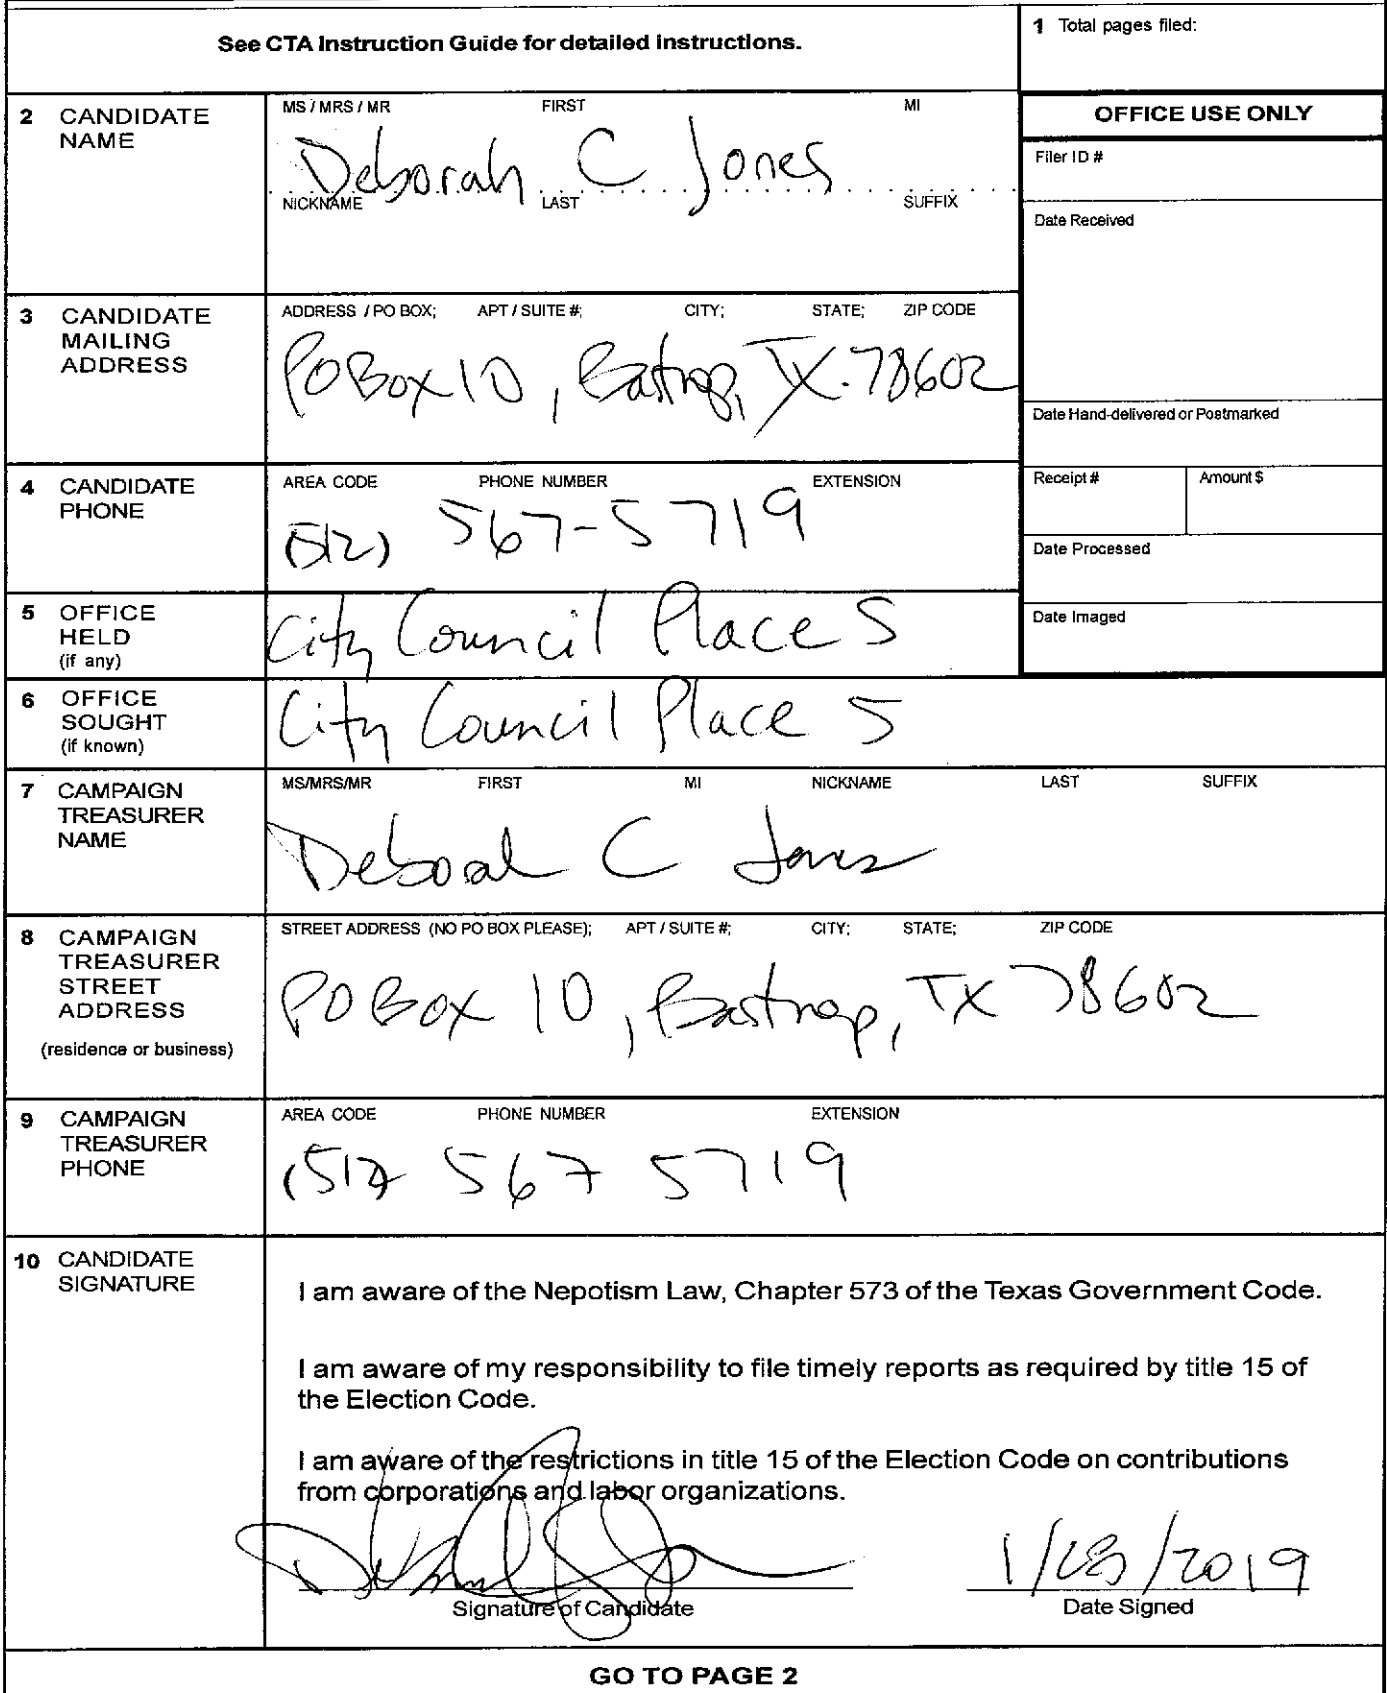 See CTA Instruction Guide for detailed instructions.
1 Total pages filed:
2 CANDIDATE NAME
MS / MRS / MR FIRST MI
Deborah C Jones
NICKNAME LAST SUFFIX
OFFICE USE ONLY
Filer ID #
Date Received
3 CANDIDATE MAILING ADDRESS
ADDRESS / PO BOX; APT / SUITE #; CITY; STATE; ZIP CODE
PO Box 10, Bastrop, TX. 78602
Date Hand-delivered or Postmarked
4 CANDIDATE PHONE
AREA CODE PHONE NUMBER EXTENSION
(512) 567-5719
Receipt # Amount $
Date Processed
5 OFFICE HELD (if any)
City Council Place 5
Date Imaged
6 OFFICE SOUGHT (if known)
City Council Place 5
7 CAMPAIGN TREASURER NAME
MS/MRS/MR FIRST MI NICKNAME LAST SUFFIX
Deborah C Jones
8 CAMPAIGN TREASURER STREET ADDRESS (residence or business)
STREET ADDRESS (NO PO BOX PLEASE); APT / SUITE #; CITY; STATE; ZIP CODE
PO Box 10, Bastrop, TX 78602
9 CAMPAIGN TREASURER PHONE
AREA CODE PHONE NUMBER EXTENSION
(512 567 5719
10 CANDIDATE SIGNATURE
I am aware of the Nepotism Law, Chapter 573 of the Texas Government Code.
I am aware of my responsibility to file timely reports as required by title 15 of
the Election Code.
I am aware of the restrictions in title 15 of the Election Code on contributions
from corporations and labor organizations.
Signature of Candidate
Date Signed
GO TO PAGE 2